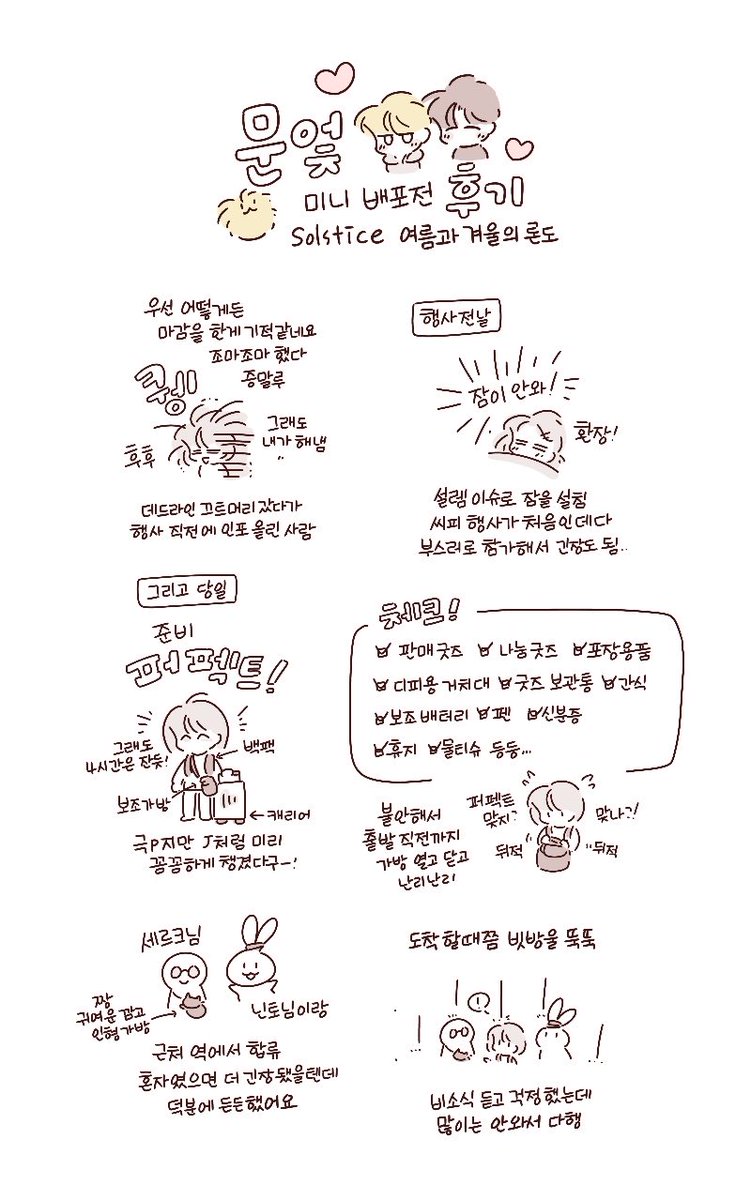 문옺
미니 배포전 후기
Solstice 여름과 겨울의 론도
우선 어떻게든
마감을 한게 기적같네요
조마조마 했다
증말루
쿠엥!!
그래도
내가 해냄
후후
데드라인 끄트머리 갔다가
행사 직전에 인포 올린 사람
행사 전날
잠이 안와!
환장!
설렘 이슈로 잠을 설침
씨피 행사가 처음인데다
부스러로 참가해서 긴장도 됨..
그리고 당일
준비
퍼펙트!
그래도
4시간은 잔듯!
백팩
보조가방
캐리어
극P지만 J처럼 미리
꼼꼼하게 챙겼다구-!
체크!
판매굿즈 나눔굿즈 포장용품
디피용 거치대 굿즈 보관통 간식
보조 배터리 펜 신분증
휴지 물티슈 등등...
불안해서
출발 직전까지
가방 열고 닫고
난리난리
퍼펙트
맞지?
맞나?!
뒤적
뒤적
세르크님
짱
귀여운 곰고
인형가방
닌토님이랑
근처 역에서 합류
혼자였으면 더 긴장됐을텐데
덕분에 든든했어요
도착 할때쯤 빗방울 뚝뚝
!
비소식 듣고 걱정했는데
많이는 안와서 다행